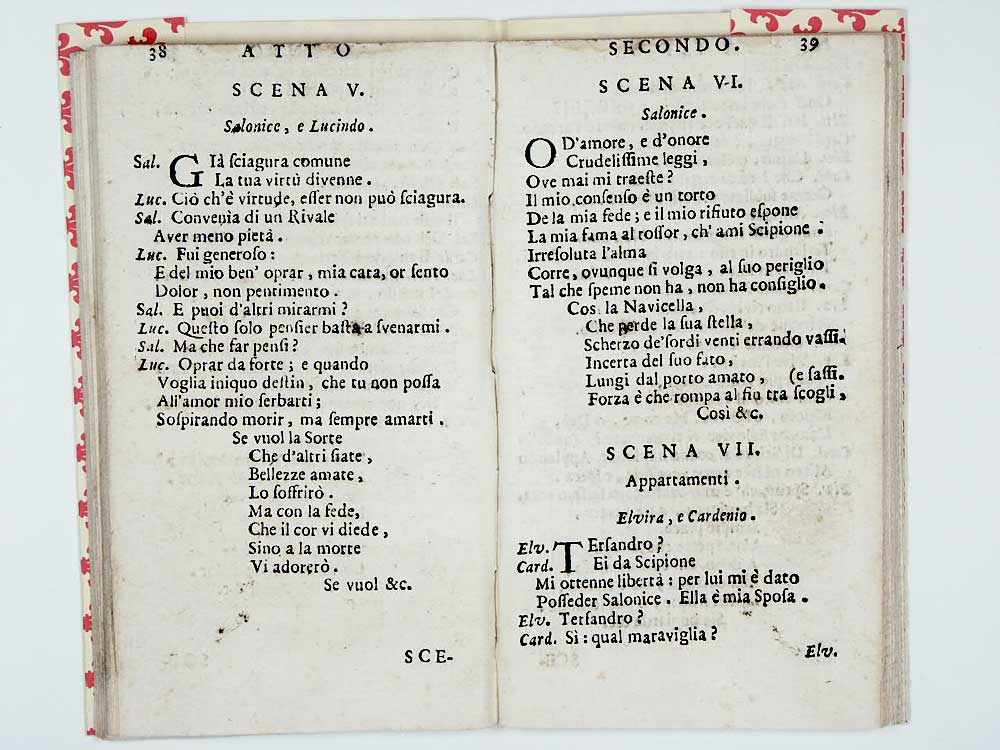 38 ATTO
SCENA V.
Salonice, e Lucindo.
Sal. GIà ſciagura comune
La tua virtù divenne.
Luc. Ciò ch'è virtude, eſſer non può ſciagura.
Sal. Convenia di un Rivale
Aver meno pietà.
Luc. Fui generoſo:
E del mio ben' oprar, mia cara, or ſento
Dolor, non pentimento.
Sal. E puoi d'altri mirarmi?
Luc. Queſto ſolo penſier baſta a ſvenarmi.
Sal. Ma che far penſi?
Luc. Oprar da forte; e quando
Voglia iniquo deſtin, che tu non poſſa
All'amor mio ſerbarti;
Soſpirando morir, ma ſempre amarti.
Se vuol la Sorte
Che d'altri ſiate,
Bellezze amate,
Lo ſoffrirò.
Ma con la fede,
Che il cor vi diede,
Sino a la morte
Vi adorerò.
Se vuol &c.
SCE-
SECONDO. 39
SCENA VI.
Salonice.
O D'amore, e d'onore
Crudeliſſime leggi,
Ove mai mi traeſte?
Il mio conſenſo è un torto
De la mia fede; e il mio rifiuto eſpone
La mia fama al roſſor, ch' ami Scipione.
Irreſoluta l'alma
Corre, ovunque ſi volga, al ſuo periglio
Tal che ſpeme non ha, non ha conſiglio.
Così la Navicella,
Che perde la ſua ſtella,
Scherzo de'ſordi venti errando vaſſi.
Incerta del ſuo fato,
Lungi dal porto amato, (e ſaſſi.
Forza è che rompa al fin tra ſcogli,
Così &c.
SCENA VII.
Appartamenti.
Elvira, e Cardenio.
Elv. TErſandro?
Card. Ei da Scipione
Mi ottenne libertà: per lui mi è dato
Poſſeder Salonice. Ella è mia Spoſa.
Elv. Terſandro?
Card. Sì: qual maraviglia?
Elv.